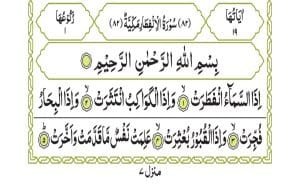 اٰيَاتُهَا ١٩
(٨٢) سُوْرَةُ الْاِنْفِطَارِ مَكِّيَّةٌ (٨٢)
رُكُوْعُهَا ١
بِسْمِ اللّٰهِ الرَّحْمٰنِ الرَّحِيْمِ
اِذَا السَّمَآءُ انْفَطَرَتْ ۙ١ وَاِذَا الْكَوَاكِبُ انْتَثَرَتْ ۙ٢ وَاِذَا الْبِحَارُ
فُجِّرَتْ ۙ٣ وَاِذَا الْقُبُوْرُ بُعْثِرَتْ ۙ٤ عَلِمَتْ نَفْسٌ مَّا قَدَّمَتْ وَاَخَّرَتْ ؕ٥
منزل ٧